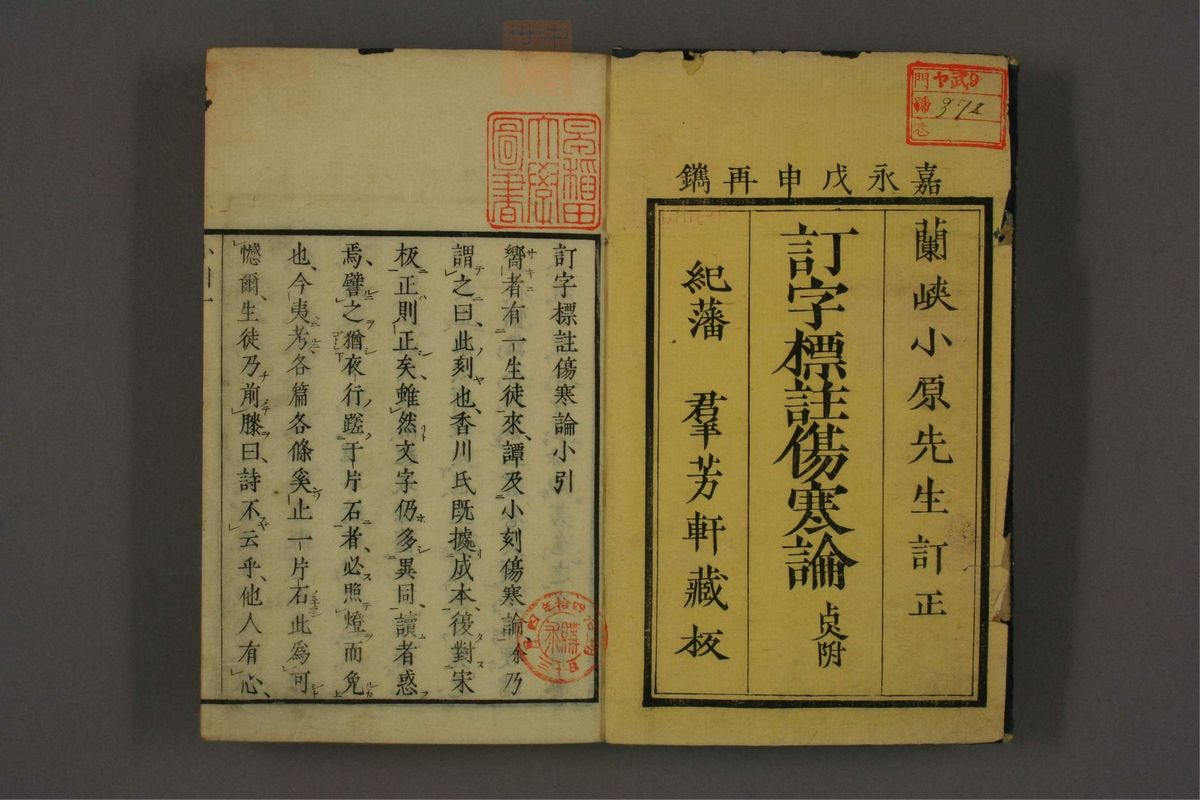 嘉永戊申再鐫
蘭峽小原先生訂正
訂字標註傷寒論 點附
紀藩 羣芳軒藏板
門 ヤ武9
號 372
卷
早稲田
大學
圖書
訂字標註傷寒論小引
嚮者有一生徒來譚及小刻傷寒論餘乃
謂之曰此刻也香川氏既據成本後對宋
板正則正矣雖然文字仍多異同讀者惑
焉譬之猶夜行蹉于片石者必照燈而免
也今夷考各篇各條奚止一片石此爲可
憾爾生徒乃前膝曰詩不云乎他人有心